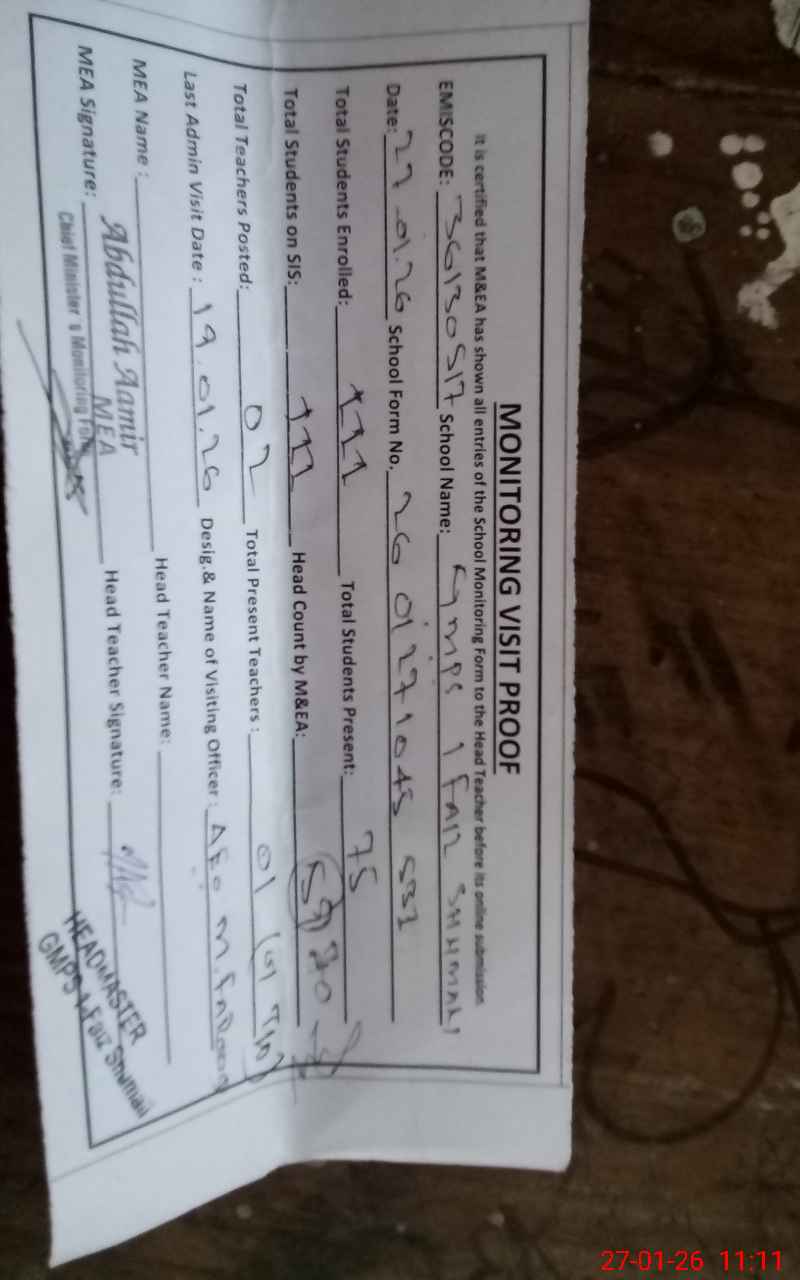 MONITORING VISIT PROOF
It is certified that M&EA has shown all entries of the School Monitoring Form to the Head Teacher before its online submission
EMISCODE: 36130517 School Name: GMPS 1 Faiz Shumali
Date: 27.01.26 School Form No. 26 01271045 531
Total Students Enrolled: 111 Total Students Present: 75
Total Students on SIS: 111 Head Count by M&EA:
Total Teachers Posted: 02 Total Present Teachers : 01
Last Admin Visit Date : 19.01.26 Desig.& Name of Visiting Officer : AEO M. Farooq
MEA Name : Head Teacher Name:
MEA Signature: Head Teacher Signature:
Abdullah Aamir
MEA
Chief Minister's Monitoring Force
HEADMASTER
GMPS 1 Faiz Shumali
27-01-26 11:11